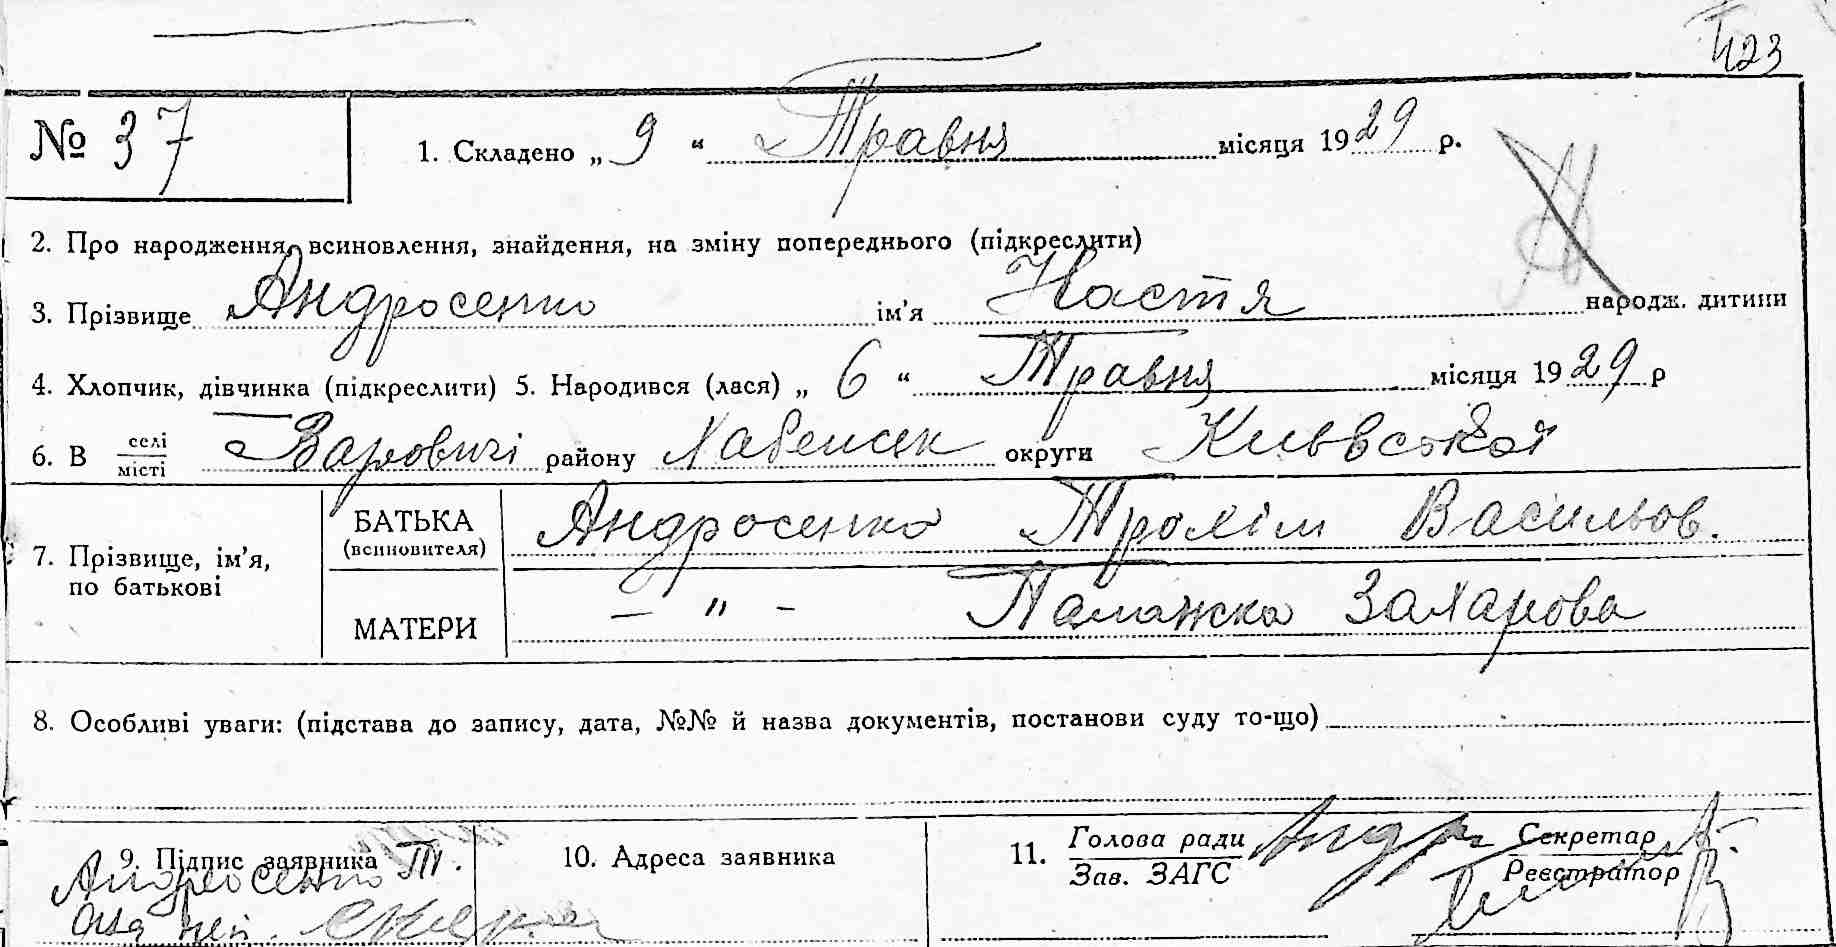 423
№ 37
1. Складено „ 9 “ Травня місяця 1929 р.
2. Про народження, всиновлення, знайдення, на зміну попереднього (підкреслити)
3. Прізвище Андросенко ім’я Настя народж. дитини
4. Хлопчик, дівчинка (підкреслити) 5. Народився (лася) „ 6 “ Травня місяця 1929 р
6. В селі
місті Варовичі району Хабенськ округи Киівської
7. Прізвище, ім’я,
по батькові
БАТЬКА
(всиновителя)
Андросенко Трохім Васильов.
МАТЕРИ
— „ — Паламжка Захарова
8. Особливі уваги: (підстава до запису, дата, №№ й назва документів, постанови суду то-що)
9. Підпис заявника
Андросенко Т.
10. Адреса заявника
11. Голова ради
Зав. ЗАГС
Секретар
Реєстратор